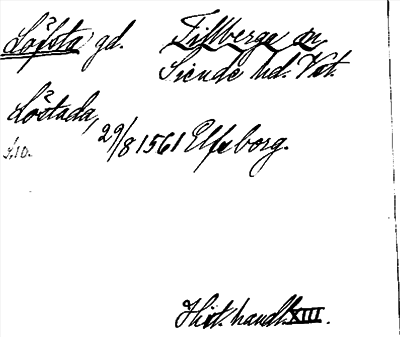 Löfsta gd. Tillberga sn.
Siende hd. Vstm.
Löstada,
29/8 1561 Elfsborg.
s. 10.
Hist. handl. XIII.